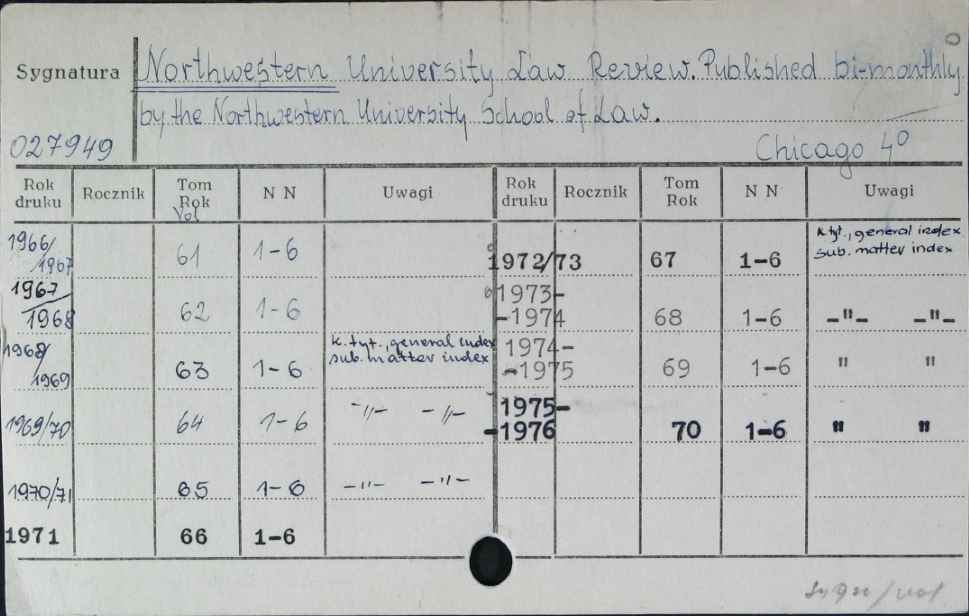 Sygnatura Northwestern University Law Review. Published bi-monthly
by the Northwestern University School of Law.
027949 Chicago 4°
Rok druku Rocznik Tom Rok N N Uwagi Rok druku Rocznik Tom Rok N N Uwagi
Vol
1966/1967 61 1-6
1967/1968 62 1-6
1968/1969 63 1-6 k. tyt., general index sub. matter index
1969/70 64 1-6 -"- -"-
1970/71 65 1-6 -"- -"-
1971 66 1-6
1972/73 67 1-6 k. tyt., general index sub. matter index
1973- -1974 68 1-6 -"- -"-
1974- -1975 69 1-6 " "
1975- -1976 70 1-6 " "